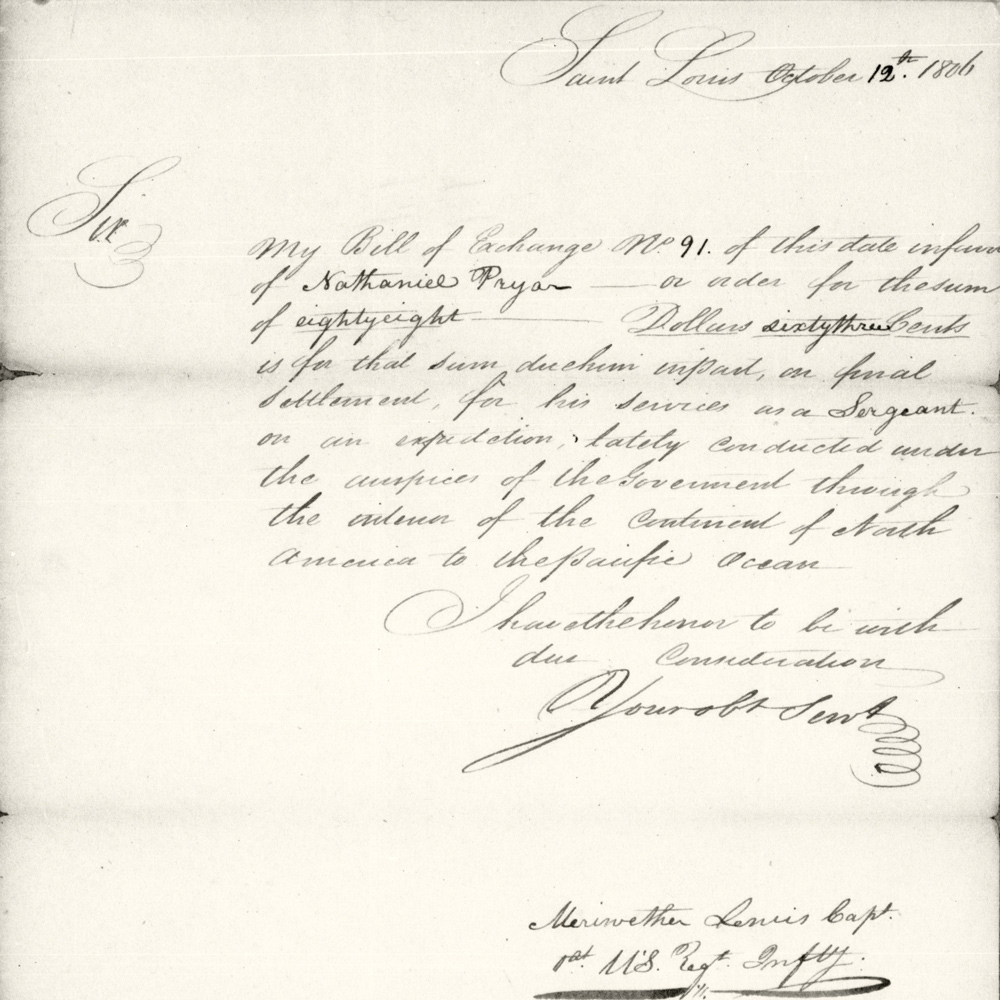 Saint Louis October 12th. 1806
Sir
My Bill of Exchange No. 91. of this date infavor
of Nathaniel Pryor — or order for the sum
of eightyeight — Dollars sixtythree Cents
is for that sum due him inpart, on final
settlement, for his services as a Sergeant.
on an expedition, lately conducted under
the auspices of the Goverment through
the interior of the Continent of North
America to the Pacific Ocean
I have the honor to be with
due Consideration
Your obt Servt
Meriwether Lewis Capt.
1st U'S. Regt. Infty.